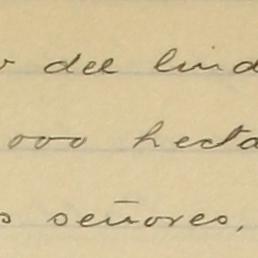 del lind
000 hecta
s señores,